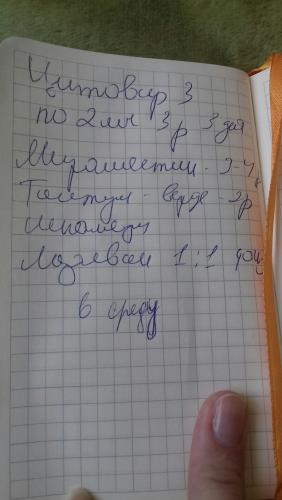 Цитовир 3
по 2 мл 3 р 3 дня
Мирамистин - 3-4 р
Тантум - верде - 3 р
Лазолван 1:1 физ
в среду